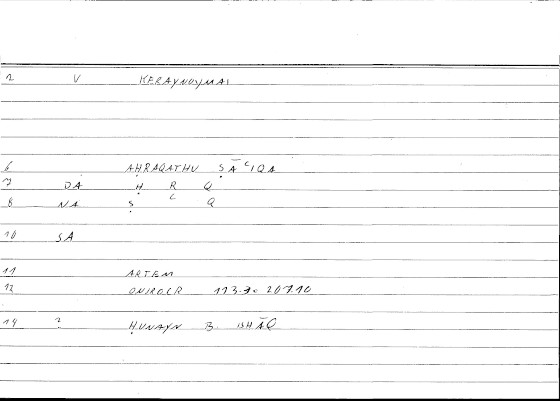 2 V KERAYNOYMAI
6 AḤRAQATHU ṢĀʿIQA
7 DA Ḥ R Q
8 NA Ṣ ʿ Q
10 SA
11 ARTEM
12 ONIROCR 113.9 = 207.10
14 ? ḤUNAYN B. ISḤĀQ